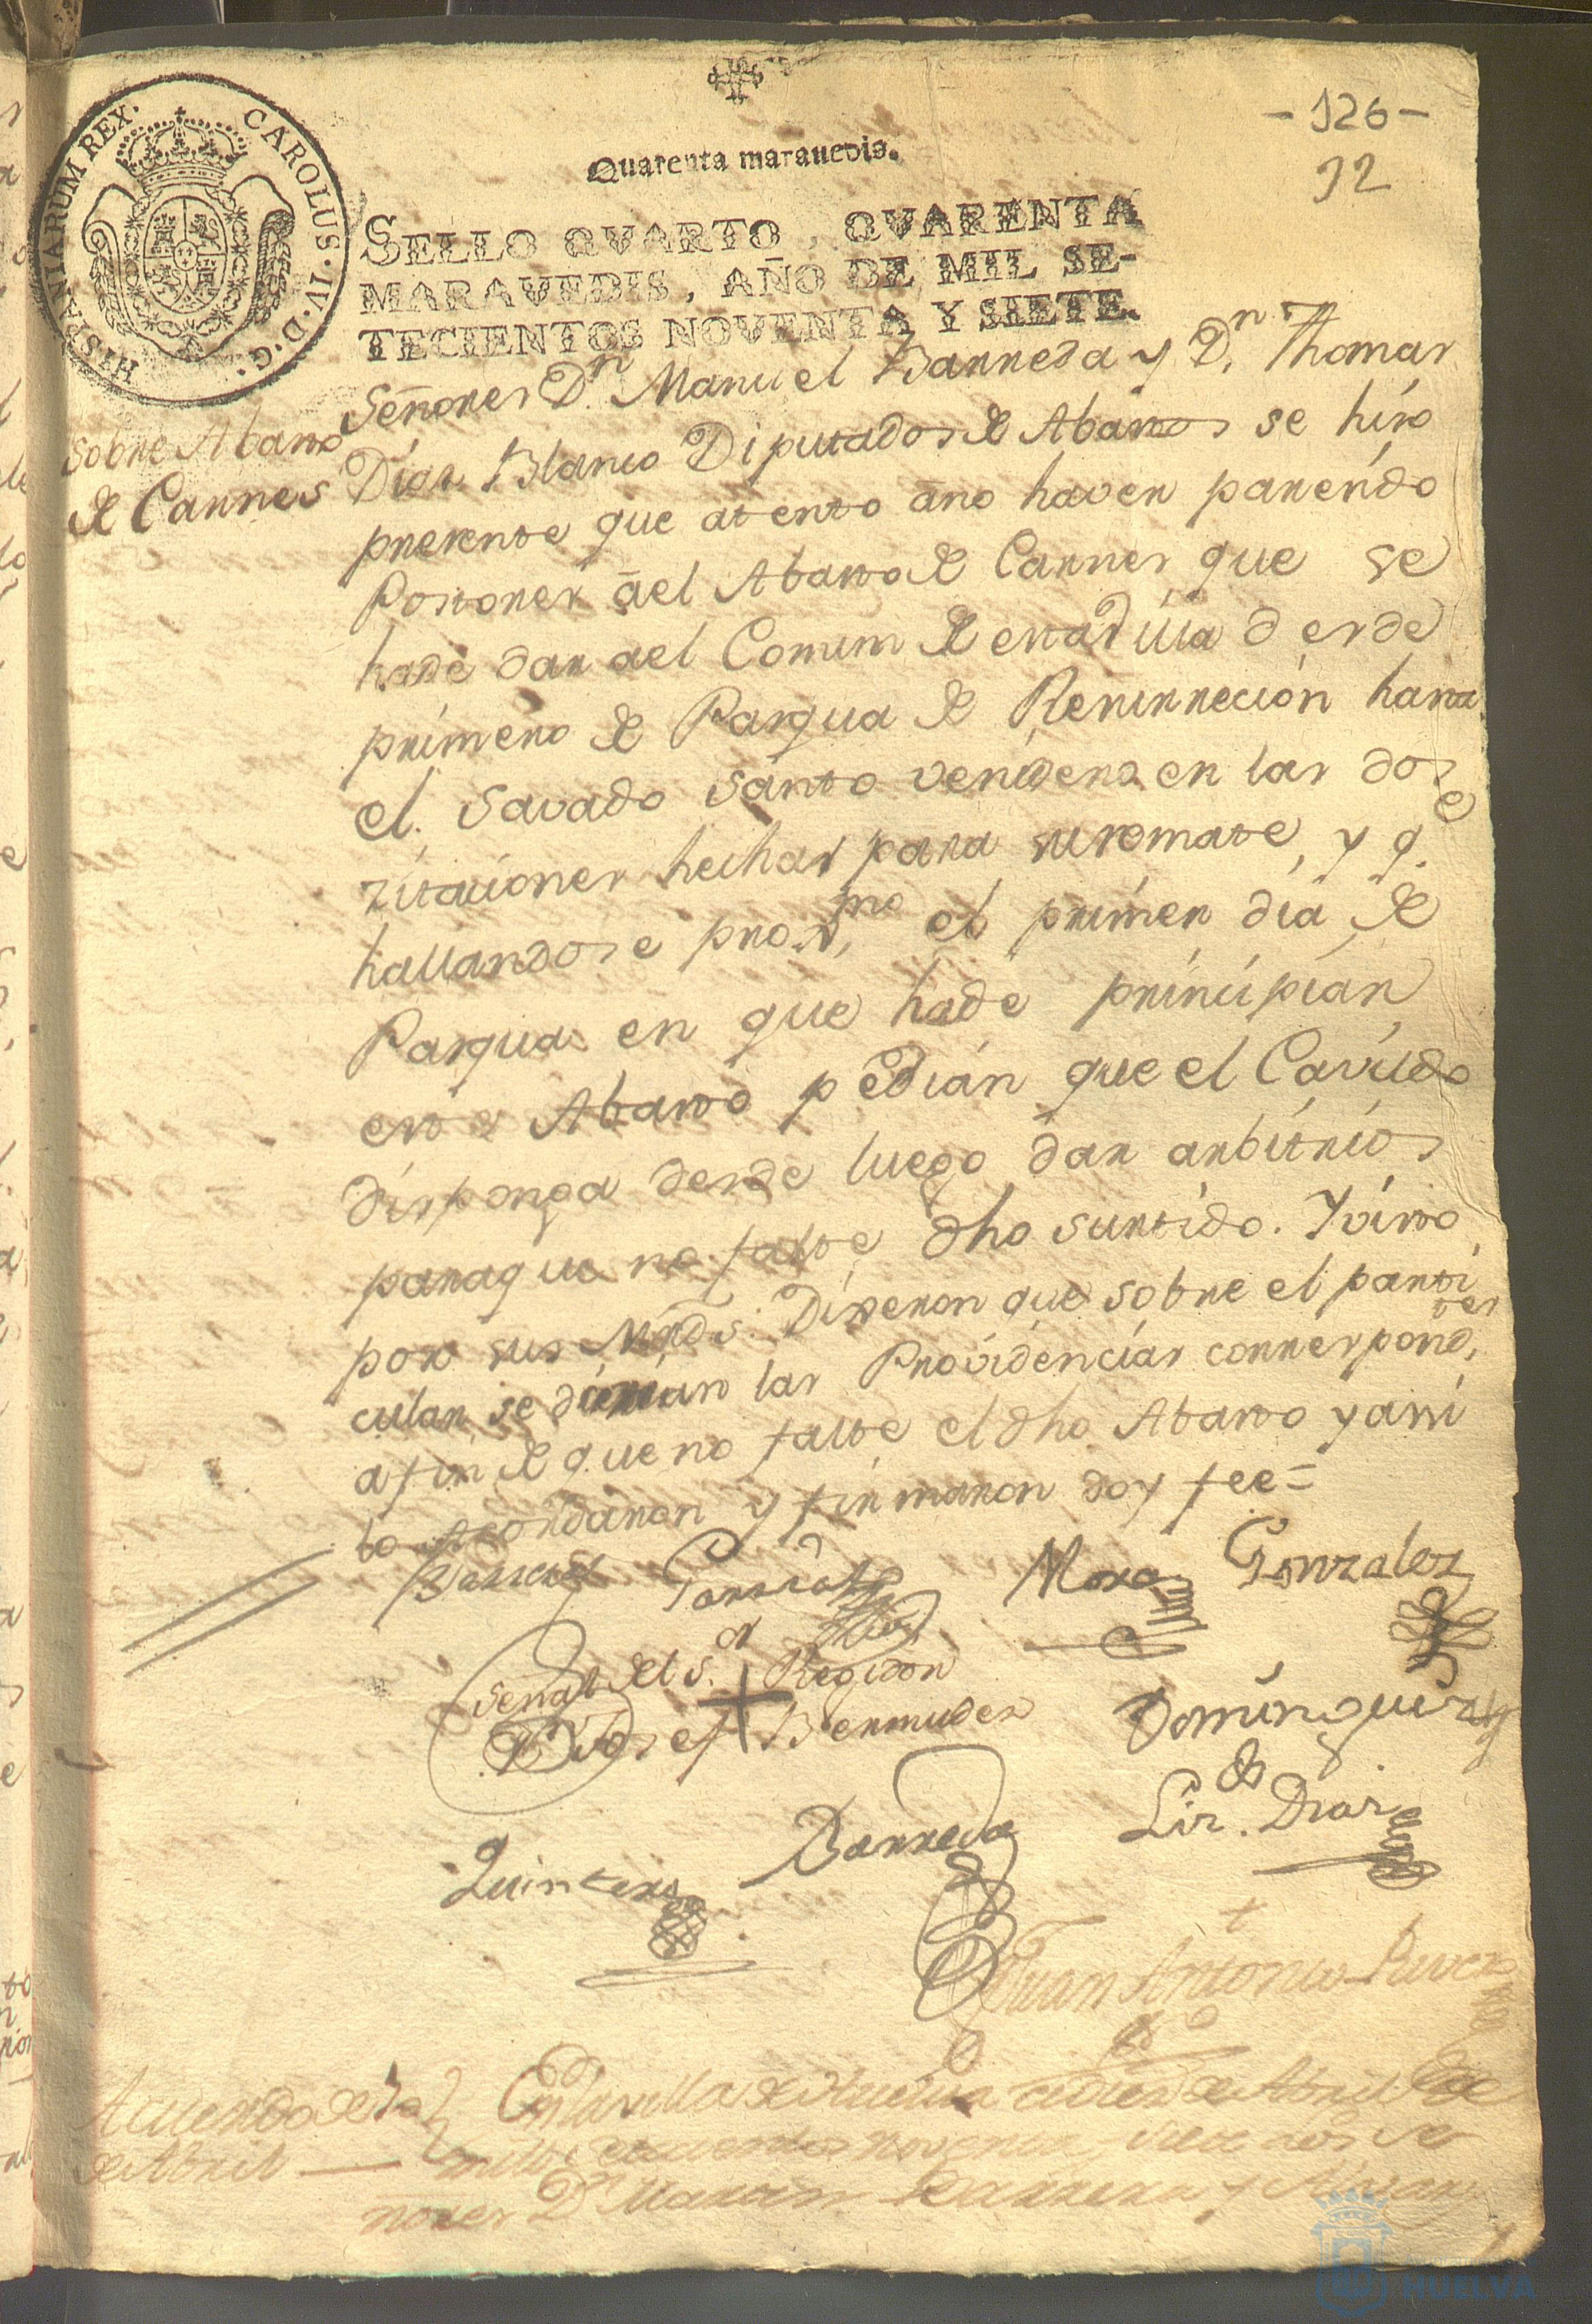 - 126 -
32
HISPANIARUM REX. CAROLUS. IV. D. G.
Quarenta maravedis.
SELLO QVARTO, QVARENTA
MARAVEDIS, AÑO DE MIL SE-
TECIENTOS NOVENTA Y SIETE.
sobre Abasto
de Carnes
Señores Dn. Manuel Barreda y Dn. Thomas
Dias Blanco Diputados de Abastos se hiso
presente que at ento a no haver parecido
Postores a el Abasto de Carnes que se
hade dar ael Comun de esta Villa desde
primero de Pasqua de Resurrección hasta
el Savado Santo venidero en las dos
zitaciones hechas para su remate, y qe
hallandose proxmo el primer dia de
Pasqua en que hade principiar
este Abasto pedian que el Cavildo
disponga desde luego dar arbitrios
paraque no falte dho surtido. Y visto
por sus Mrds. Dixeron que sobre el parti
cular se las Providencias correspondtes
a fin de que no falte el dho Abasto y assi
lo acordaron y firmaron doy fee =
Garcia Mora Gonzalez
Señal del Sor. Regidor
Dn Josef + Bermudez Dominguez
Quintero Barreda Liz.do Diaz
Juan Antonio
Acuerdo de
de Abril
En la villa de Huelva a dies de Abril de
mil setecientos noventa y siete los se
ñores Dn
HUELVA